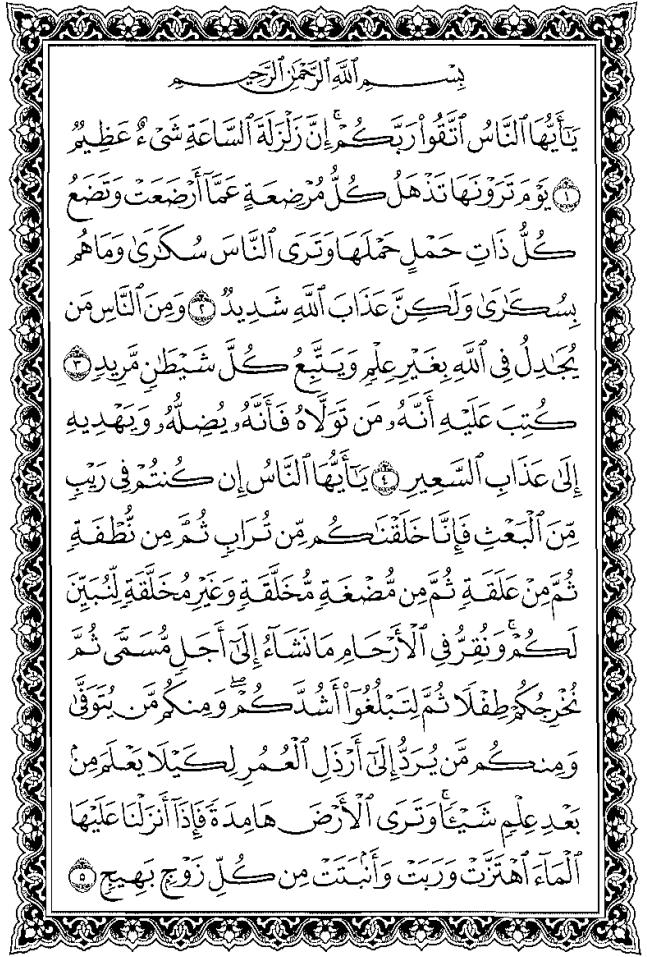 بِسْمِ ٱللَّهِ ٱلرَّحْمَٰنِ ٱلرَّحِيمِ
يَٰٓأَيُّهَا ٱلنَّاسُ ٱتَّقُوا۟ رَبَّكُمْ ۚ إِنَّ زَلْزَلَةَ ٱلسَّاعَةِ شَىْءٌ عَظِيمٌ
﴿١﴾ يَوْمَ تَرَوْنَهَا تَذْهَلُ كُلُّ مُرْضِعَةٍ عَمَّآ أَرْضَعَتْ وَتَضَعُ
كُلُّ ذَاتِ حَمْلٍ حَمْلَهَا وَتَرَى ٱلنَّاسَ سُكَٰرَىٰ وَمَا هُم
بِسُكَٰرَىٰ وَلَٰكِنَّ عَذَابَ ٱللَّهِ شَدِيدٌ ﴿٢﴾ وَمِنَ ٱلنَّاسِ مَن
يُجَٰدِلُ فِى ٱللَّهِ بِغَيْرِ عِلْمٍ وَيَتَّبِعُ كُلَّ شَيْطَٰنٍ مَّرِيدٍ ﴿٣﴾
كُتِبَ عَلَيْهِ أَنَّهُۥ مَن تَوَلَّاهُ فَأَنَّهُۥ يُضِلُّهُۥ وَيَهْدِيهِ
إِلَىٰ عَذَابِ ٱلسَّعِيرِ ﴿٤﴾ يَٰٓأَيُّهَا ٱلنَّاسُ إِن كُنتُمْ فِى رَيْبٍ
مِّنَ ٱلْبَعْثِ فَإِنَّا خَلَقْنَٰكُم مِّن تُرَابٍ ثُمَّ مِن نُّطْفَةٍ
ثُمَّ مِنْ عَلَقَةٍ ثُمَّ مِن مُّضْغَةٍ مُّخَلَّقَةٍ وَغَيْرِ مُخَلَّقَةٍ لِّنُبَيِّنَ
لَكُمْ ۚ وَنُقِرُّ فِى ٱلْأَرْحَامِ مَا نَشَآءُ إِلَىٰٓ أَجَلٍ مُّسَمًّى ثُمَّ
نُخْرِجُكُمْ طِفْلًا ثُمَّ لِتَبْلُغُوٓا۟ أَشُدَّكُمْ ۖ وَمِنكُم مَّن يُتَوَفَّىٰ
وَمِنكُم مَّن يُرَدُّ إِلَىٰٓ أَرْذَلِ ٱلْعُمُرِ لِكَيْلَا يَعْلَمَ مِنۢ
بَعْدِ عِلْمٍ شَيْـًٔا ۚ وَتَرَى ٱلْأَرْضَ هَامِدَةً فَإِذَآ أَنزَلْنَا عَلَيْهَا
ٱلْمَآءَ ٱهْتَزَّتْ وَرَبَتْ وَأَنۢبَتَتْ مِن كُلِّ زَوْجٍۭ بَهِيجٍ ﴿٥﴾